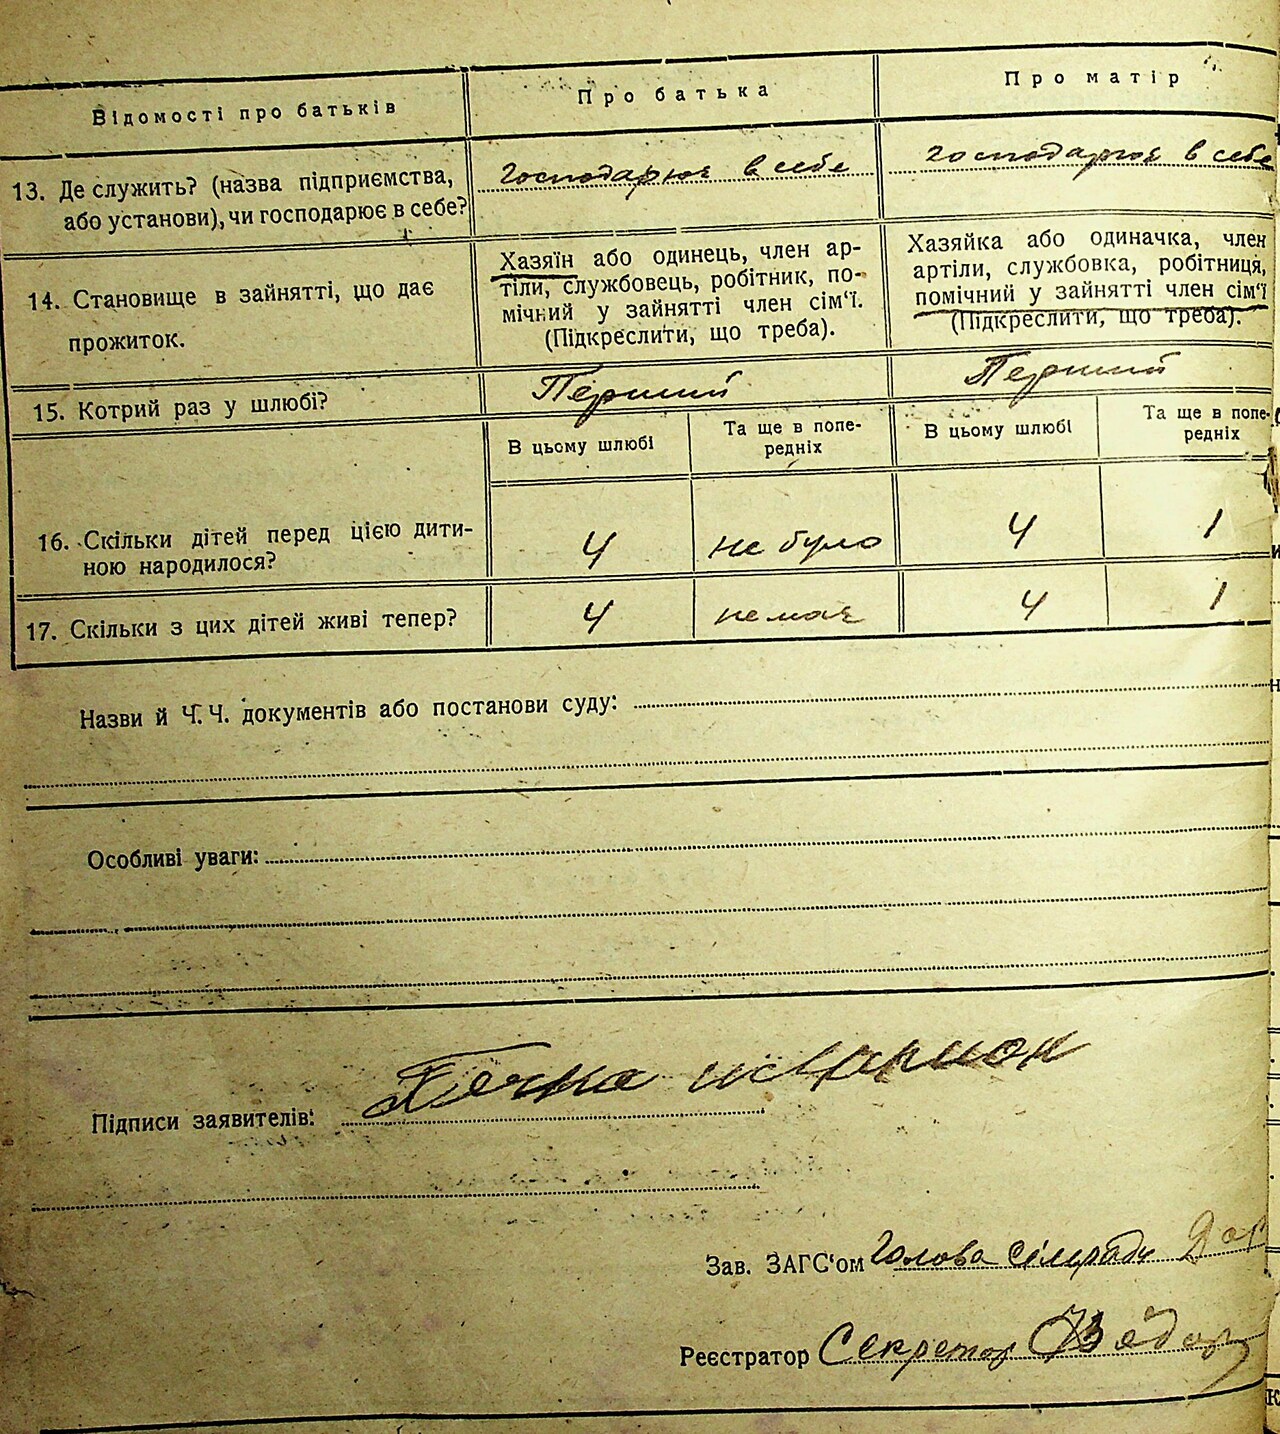 Відомості про батьків
Про батька
Про матір
13. Де служить? (назва підприємства,
або установи), чи господарює в себе?
господарює в себе
господарює в себе
14. Становище в зайнятті, що дає
прожиток.
Хазяїн або одинець, член ар-
тіли, службовець, робітник, по-
мічний у зайнятті член сім'ї.
(Підкреслити, що треба).
Хазяйка або одиначка, член
артіли, службовка, робітниця,
помічний у зайнятті член сім'ї
(Підкреслити, що треба).
15. Котрий раз у шлюбі?
Перший
Перший
В цьому шлюбі
Та ще в попе-
редніх
В цьому шлюбі
Та ще в попе-
редніх
16. Скільки дітей перед цією дити-
ною народилося?
4
не було
4
1
17. Скільки з цих дітей живі тепер?
4
немає
4
1
Назви й Ч.Ч. документів або постанови суду:
Особливі уваги:
Підписи заявителів:
Зав. ЗАГС'ом Голова сільради
Реєстратор Секретар